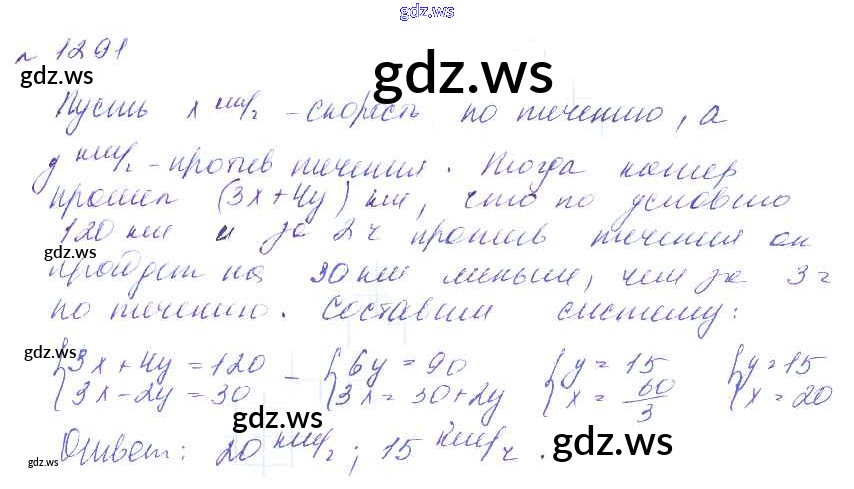 gdz.ws
№ 1291
gdz.ws
gdz.ws
Пусть x км/ч - скорость по течению, а
y км/ч - против течения. Тогда катер
прошел (3x+4y) км, что по условию
120 км и за 2ч против течения он
gdz.ws
пройдет на 30 км меньше, чем за 3 ч
по течению. Составим систему:
gdz.ws
{3x + 4y = 120 - {6y = 90 {y = 15 {y = 15
{3x - 2y = 30 {3x = 30 + 2y {x = 60/3 {x = 20
gdz.ws
gdz.ws
Ответ: 20 км/ч; 15 км/ч.
gdz.ws
gdz.ws